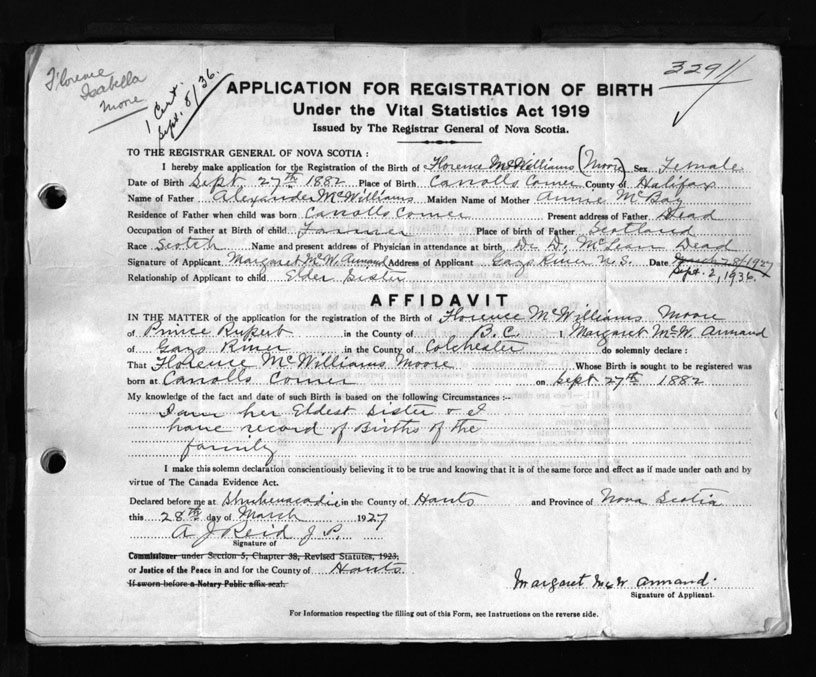 Florence
Isabella
Moore
1 Cert.
Sept. 8/36.
3291
APPLICATION FOR REGISTRATION OF BIRTH
Under the Vital Statistics Act 1919
Issued by The Registrar General of Nova Scotia.
TO THE REGISTRAR GENERAL OF NOVA SCOTIA :
I hereby make application for the Registration of the Birth of Florence McWilliams (Moore) Sex Female
Date of Birth Sept 27th 1882 Place of Birth Carrolls Corner County of Halifax
Name of Father Alexander McWilliams Maiden Name of Mother Annie McBay
Residence of Father when child was born Carrolls Corner Present address of Father Dead
Occupation of Father at Birth of child Farmer Place of birth of Father Scotland
Race Scotch Name and present address of Physician in attendance at birth Dr D. McLean Dead
Signature of Applicant Margaret McW. Armand Address of Applicant Gays River N.S. Date March 28/1927
Sept. 2, 1936.
Relationship of Applicant to child Elder Sister
AFFIDAVIT
IN THE MATTER of the application for the registration of the Birth of Florence McWilliams Moore
of Prince Rupert in the County of B.C. ; Margaret McW. Armand
of Gays River in the County of Colchester do solemnly declare :
That Florence McWilliams Moore Whose Birth is sought to be registered was
born at Carrolls Corner on Sept 27th 1882
My knowledge of the fact and date of such Birth is based on the following Circumstances :-
I am her Eldest Sister & I
have record of Births of the
family
I make this solemn declaration conscientiously believing it to be true and knowing that it is of the same force and effect as if made under oath and by
virtue of The Canada Evidence Act.
Declared before me at Shubenacadie in the County of Hants and Province of Nova Scotia
this 28th day of March 1927
A J Reid J. P.
Signature of
Commissioner under Section 5, Chapter 38, Revised Statutes, 1923,
or Justice of the Peace in and for the County of Hants
If sworn before a Notary Public affix seal.
Margaret McW Armand.
Signature of Applicant.
For Information respecting the filling out of this Form, see Instructions on the reverse side.